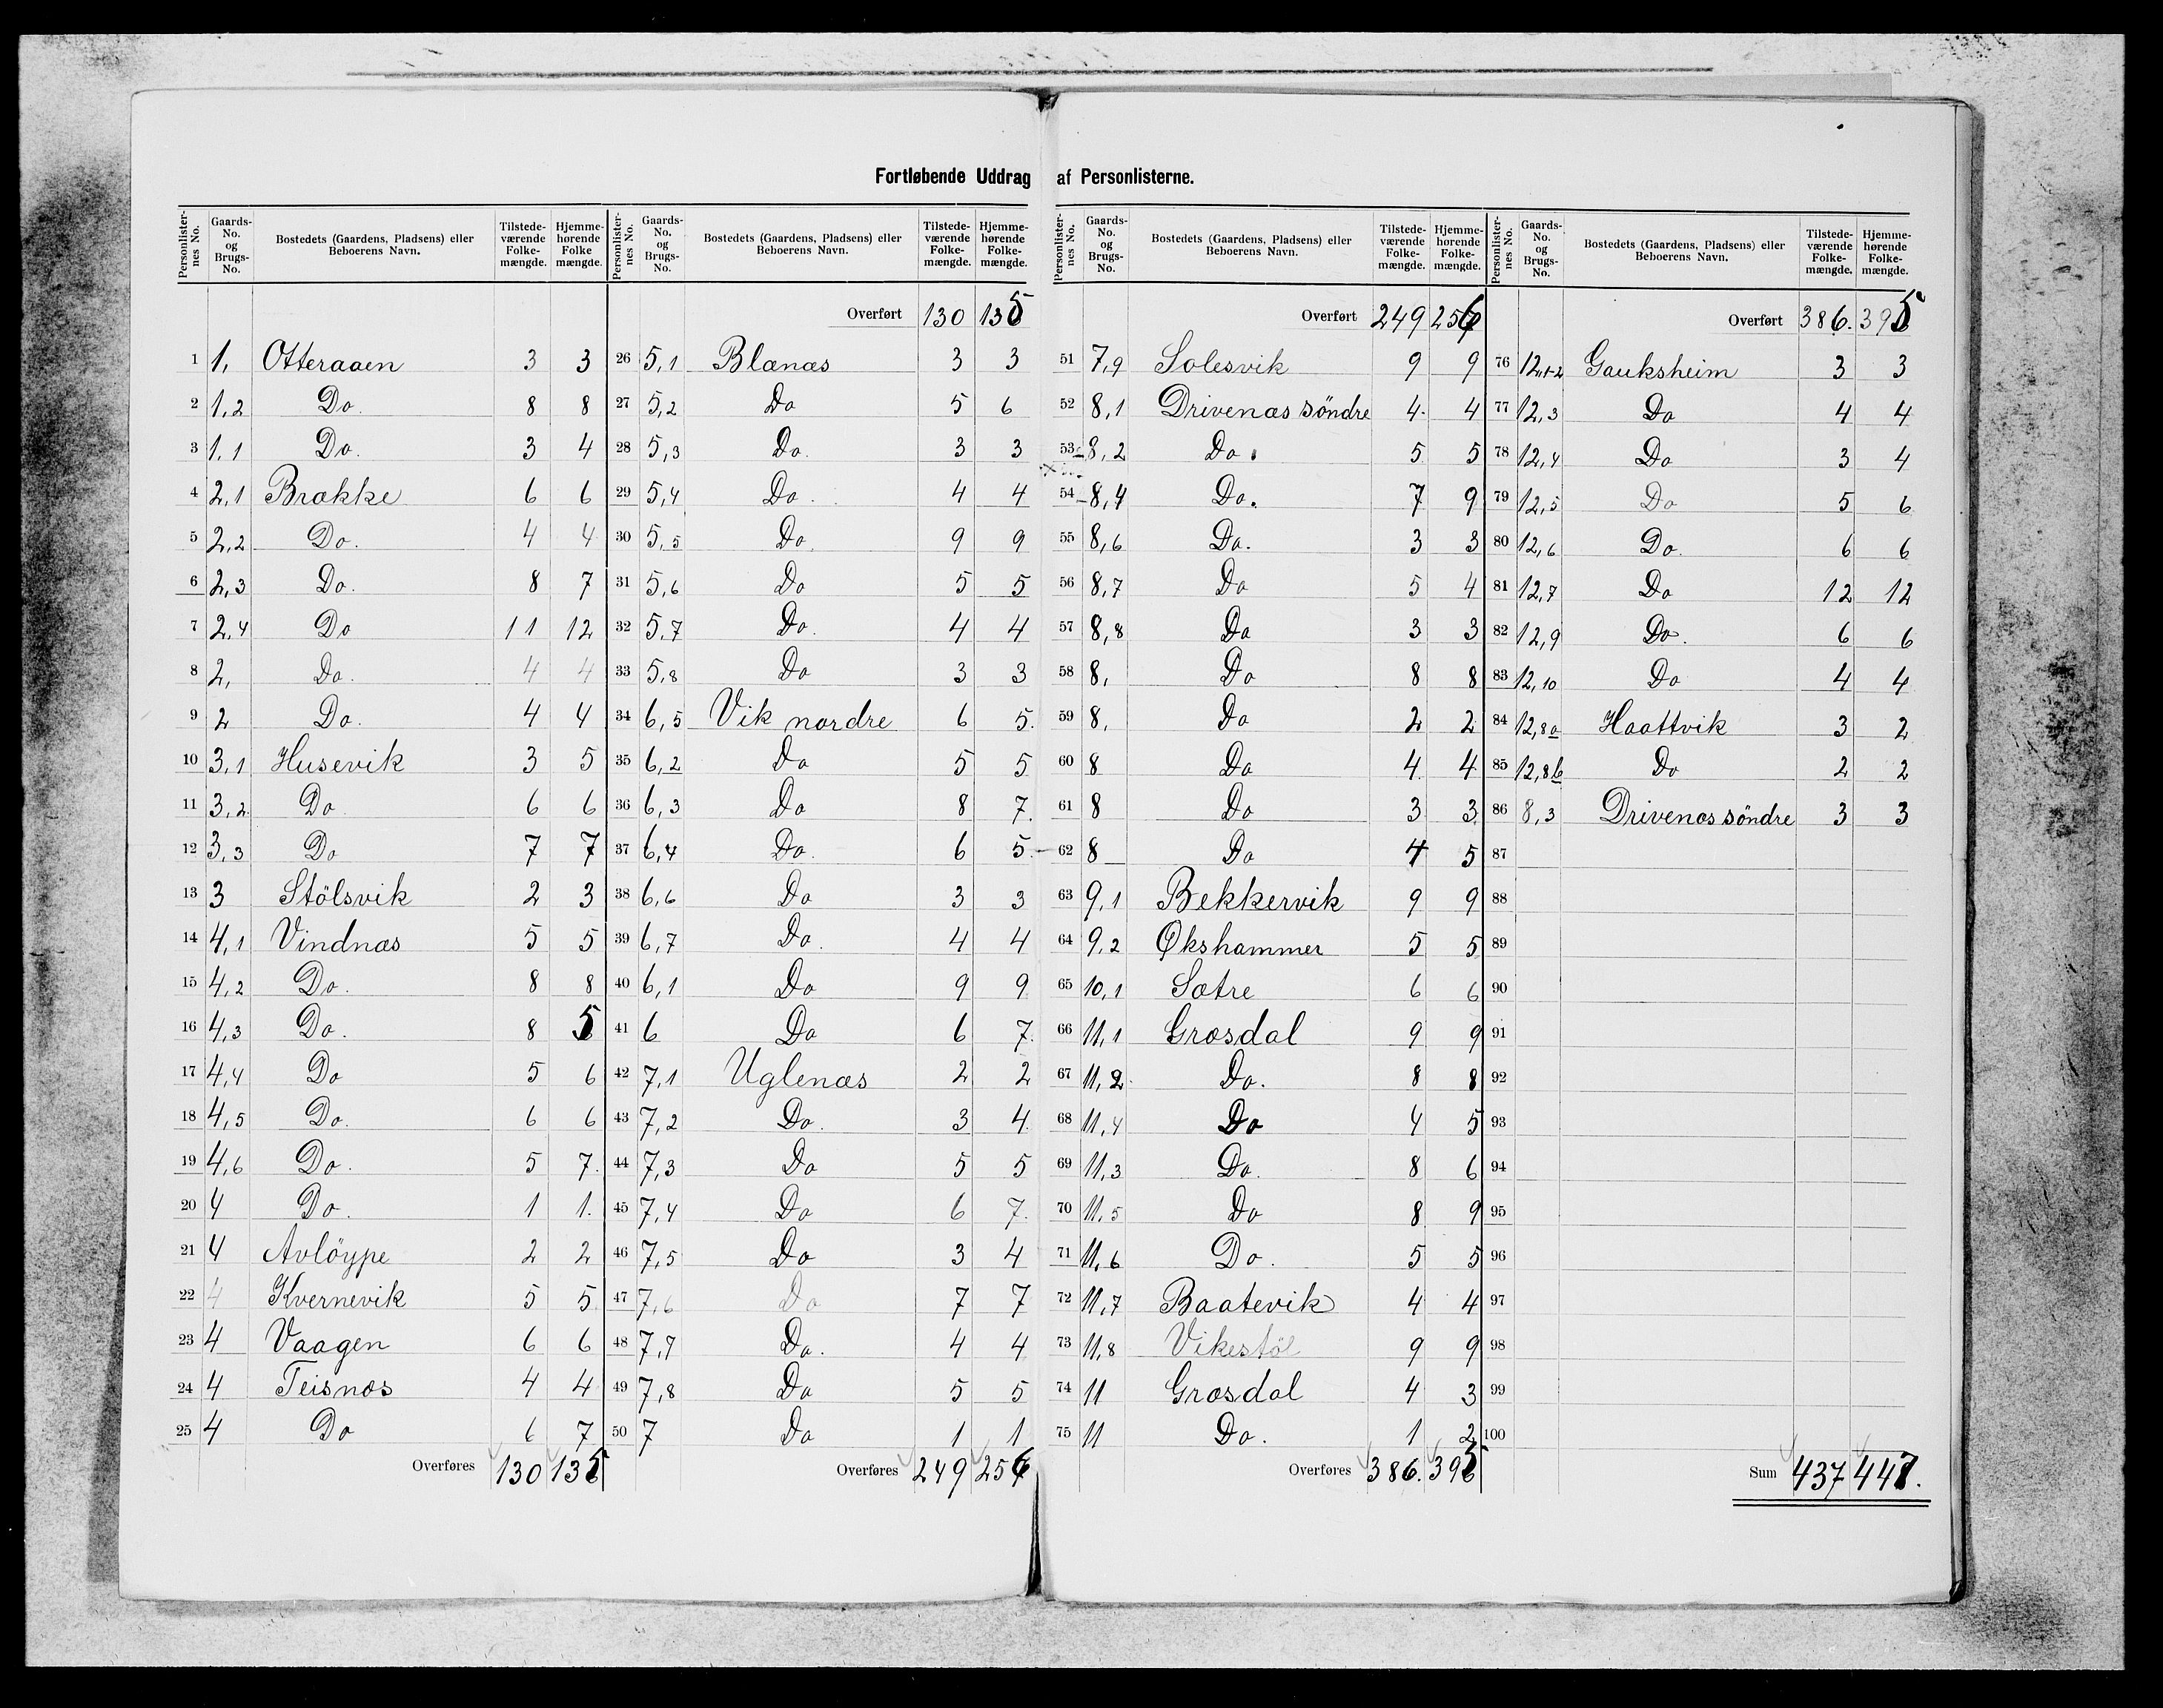 Fortløbende Uddrag af Personlisterne.
Personlister-nes No. Gaards-No. og Brugs-No. Bostedets (Gaardens, Pladsens) eller Beboerens Navn. Tilstede-værende Folke-mængde. Hjemme-hørende Folke mængde.
1 1, Otteraaen 3 3
2 1,2 Do. 8 8
3 1,1 Do. 3 4
4 2,1 Brække 6 6
5 2,2 Do. 4 4
6 2,3 Do. 8 7
7 2,4 Do 11 12
8 2, Do. 4 4
9 2 Do. 4 4
10 3,1 Husevik 3 5
11 3,2 Do 6 6
12 3,3 Do 7 7
13 3 Stölsvik 2 3
14 4,1 Vindnæs 5 5
15 4,2 Do. 8 8
16 4,3 Do. 8 5
17 4,4 Do 5 6
18 4,5 Do. 6 6
19 4,6 Do. 5 7.
20 4 Do. 1 1.
21 4 Avlöype 2 2
22 4 Kvernevik 5 5
23 4 Vaagen 6 6
24 4 Teisnæs 4 4
25 4 Do 6 7
Overføres 130 135
Personlister-nes No. Gaards-No. og Brugs-No. Bostedets (Gaardens, Pladsens) eller Beboerens Navn. Tilstede-værende Folke-mængde. Hjemme-hørende Folke-mængde.
Overført 130 135
26 5,1 Blænæs 3 3
27 5,2 Do 5 6
28 5,3 Do. 3 3
29 5,4 Do. 4 4
30 5,5 Do. 9 9
31 5,6 Do 5 5
32 5,7 Do. 4 4
33 5,8 Do 3 3
34 6,5 Vik nordre 6 5.
35 6,2 Do 5 5
36 6,3 Do 8 7.
37 6,4 Do. 6 5.
38 6,6 Do 3 3
39 6,7 Do. 4 4
40 6,1 Do 9 9
41 6 Do 6 7.
42 7,1 Uglenæs 2 2
43 7,2 Do. 3 4
44 7,3 Do 5 5
45 7,4 Do 6 7.
46 7,5 Do 3 4
47 7,6 Do 7 7
48 7,7 Do. 4 4
49 7,8 Do 5 5
50 7 Do 1 1
Overføres 249 256
Personlister-nes No. Gaards-No. og Brugs-No. Bostedets (Gaardens, Pladsens) eller Beboerens Navn. Tilstede-værende Folke-mængde. Hjemme-hørende Folke-mængde.
Overført 249 256
51 7,9 Solesvik 9 9
52 8,1 Drivenæs söndre 4. 4
53 8,2 Do. 5 5
54 8,4 Do. 7 9
55 8,6 Do. 3 3
56 8,7 Do 5 4
57 8,8 Do 3 3
58 8, Do 8 8
59 8, Do 2 2
60 8 Do 4 4
61 8 Do 3 3
62 8 Do 4 5
63 9,1 Bekkervik 9 9
64 9,2 Økshammer 5 5
65 10,1 Sætre 6 6
66 11,1 Grøsdal 9 9
67 11,2. Do. 8 8
68 11,4 Do 4 5
69 11,3 Do. 8 6
70 11,5 Do 8 9
71 11,6 Do. 5 5
72 11,7 Baatevik 4 4
73 11,8 Vikestöl 9 9
74 11 Grøsdal 4 3
75 11 Do. 1 2
Overføres 386. 395
Personlister-nes No. Gaards-No. og Brugs-No. Bostedets (Gaardens, Pladsens) eller Beboerens Navn. Tilstede-værende Folke-mængde. Hjemme-hørende Folke-mængde.
Overført 386. 395
76 12,1+2 Gauksheim 3 3
77 12,3 Do 4 4
78 12,4 Do 3 4
79 12,5 Do 5 6
80 12,6 Do. 6 6
81 12,7 Do 12 12
82 12,9 Do. 6 6
83 12,10 Do 4 4
84 12,8a Haattvik 3 2
85 12,8b Do 2 2
86 8,3 Drivenæs söndre 3 3
87
88
89
90
91
92
93
94
95
96
97
98
99
100
Sum 437 447.